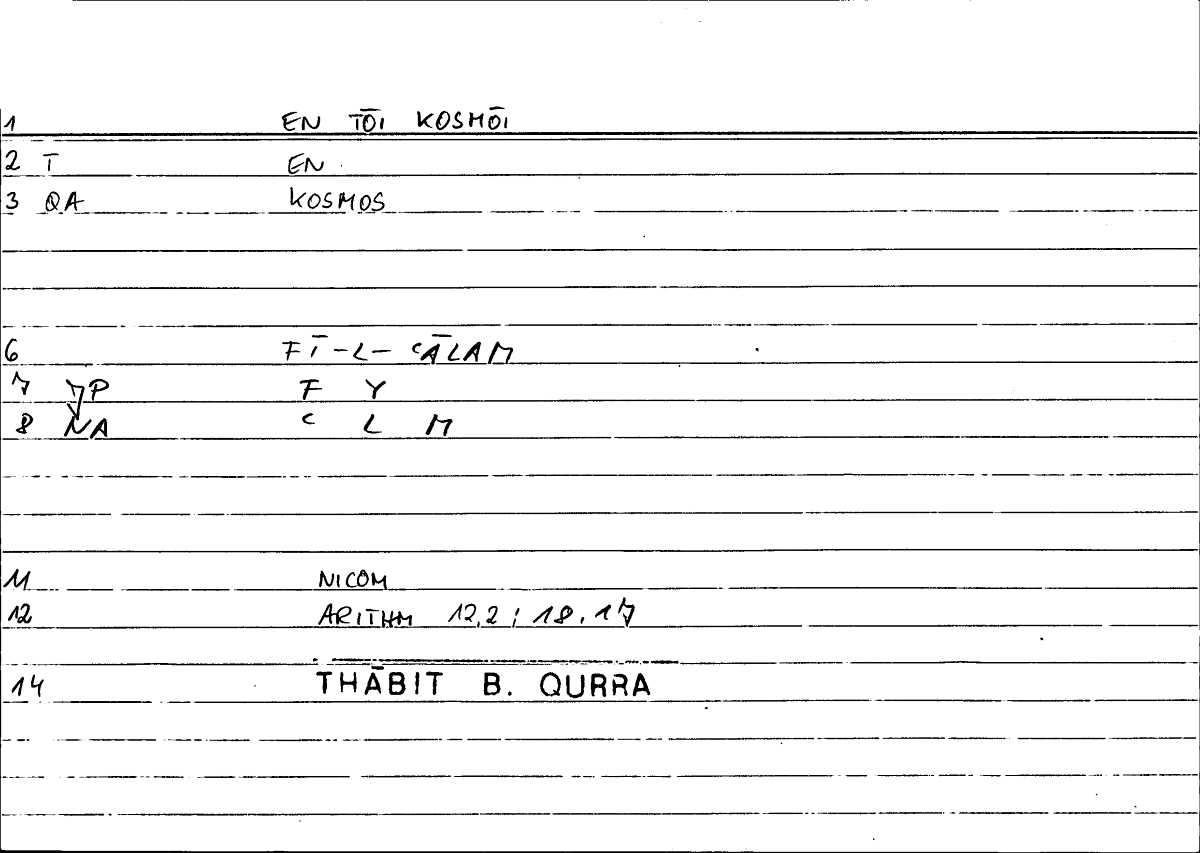 1 EN TŌI KOSMŌI
2 T EN
3 QA KOSMOS
6 FĪ-L-ʿĀLAM
7 P F Y
8 NA ʿ L M
11 NICOM
12 ARITHM 12,2 ; 18,17
14 THĀBIT B. QURRA